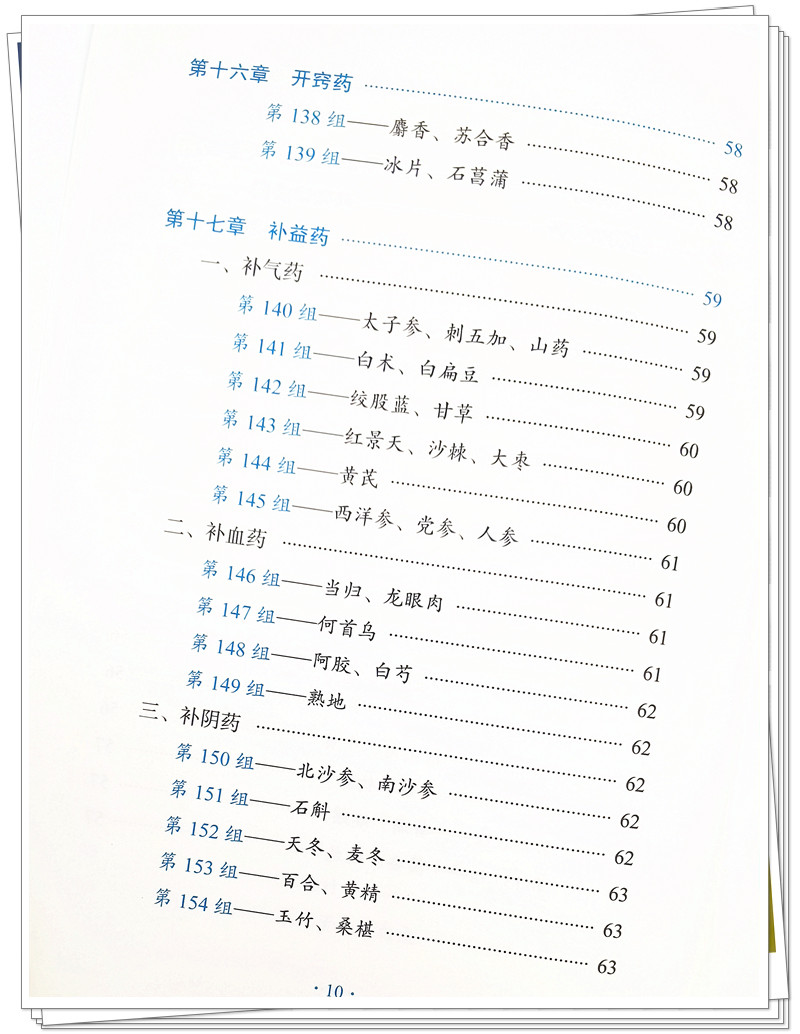 第十六章 开窍药 …… 58
第 138 组——麝香、苏合香 …… 58
第 139 组——冰片、石菖蒲 …… 58
第十七章 补益药 …… 59
一、补气药 …… 59
第 140 组——太子参、刺五加、山药 …… 59
第 141 组——白术、白扁豆 …… 59
第 142 组——绞股蓝、甘草 …… 60
第 143 组——红景天、沙棘、大枣 …… 60
第 144 组——黄芪 …… 60
第 145 组——西洋参、党参、人参 …… 61
二、补血药 …… 61
第 146 组——当归、龙眼肉 …… 61
第 147 组——何首乌 …… 61
第 148 组——阿胶、白芍 …… 62
第 149 组——熟地 …… 62
三、补阴药 …… 62
第 150 组——北沙参、南沙参 …… 62
第 151 组——石斛 …… 62
第 152 组——天冬、麦冬 …… 63
第 153 组——百合、黄精 …… 63
第 154 组——玉竹、桑椹 …… 63
· 10 ·